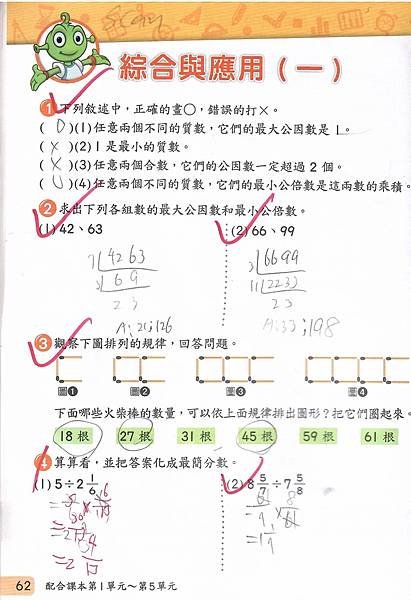 綜合與應用（一）
1 下列敘述中，正確的畫○，錯誤的打×。
( O )(1)任意兩個不同的質數，它們的最大公因數是1。
( × )(2)1是最小的質數。
( × )(3)任意兩個合數，它們的公因數一定超過2個。
( O )(4)任意兩個不同的質數，它們的最小公倍數是這兩數的乘積。
2 求出下列各組數的最大公因數和最小公倍數。
(1) 42、63
(2) 66、99
7 42 63
3 6 9
2 3
A: 21; 126
3 66 99
11 22 33
2 3
A: 33; 198
3 觀察下圖排列的規律，回答問題。
圖① 圖② 圖③ 圖④
下面哪些火柴棒的數量，可以依上面規律排出圖形？把它們圈起來。
18根 27根 31根 45根 59根 61根
4 算算看，並把答案化成最簡分數。
(1) 5÷2 1/6
(2) 8 5/7÷7 5/8
62 配合課本第1單元～第5單元